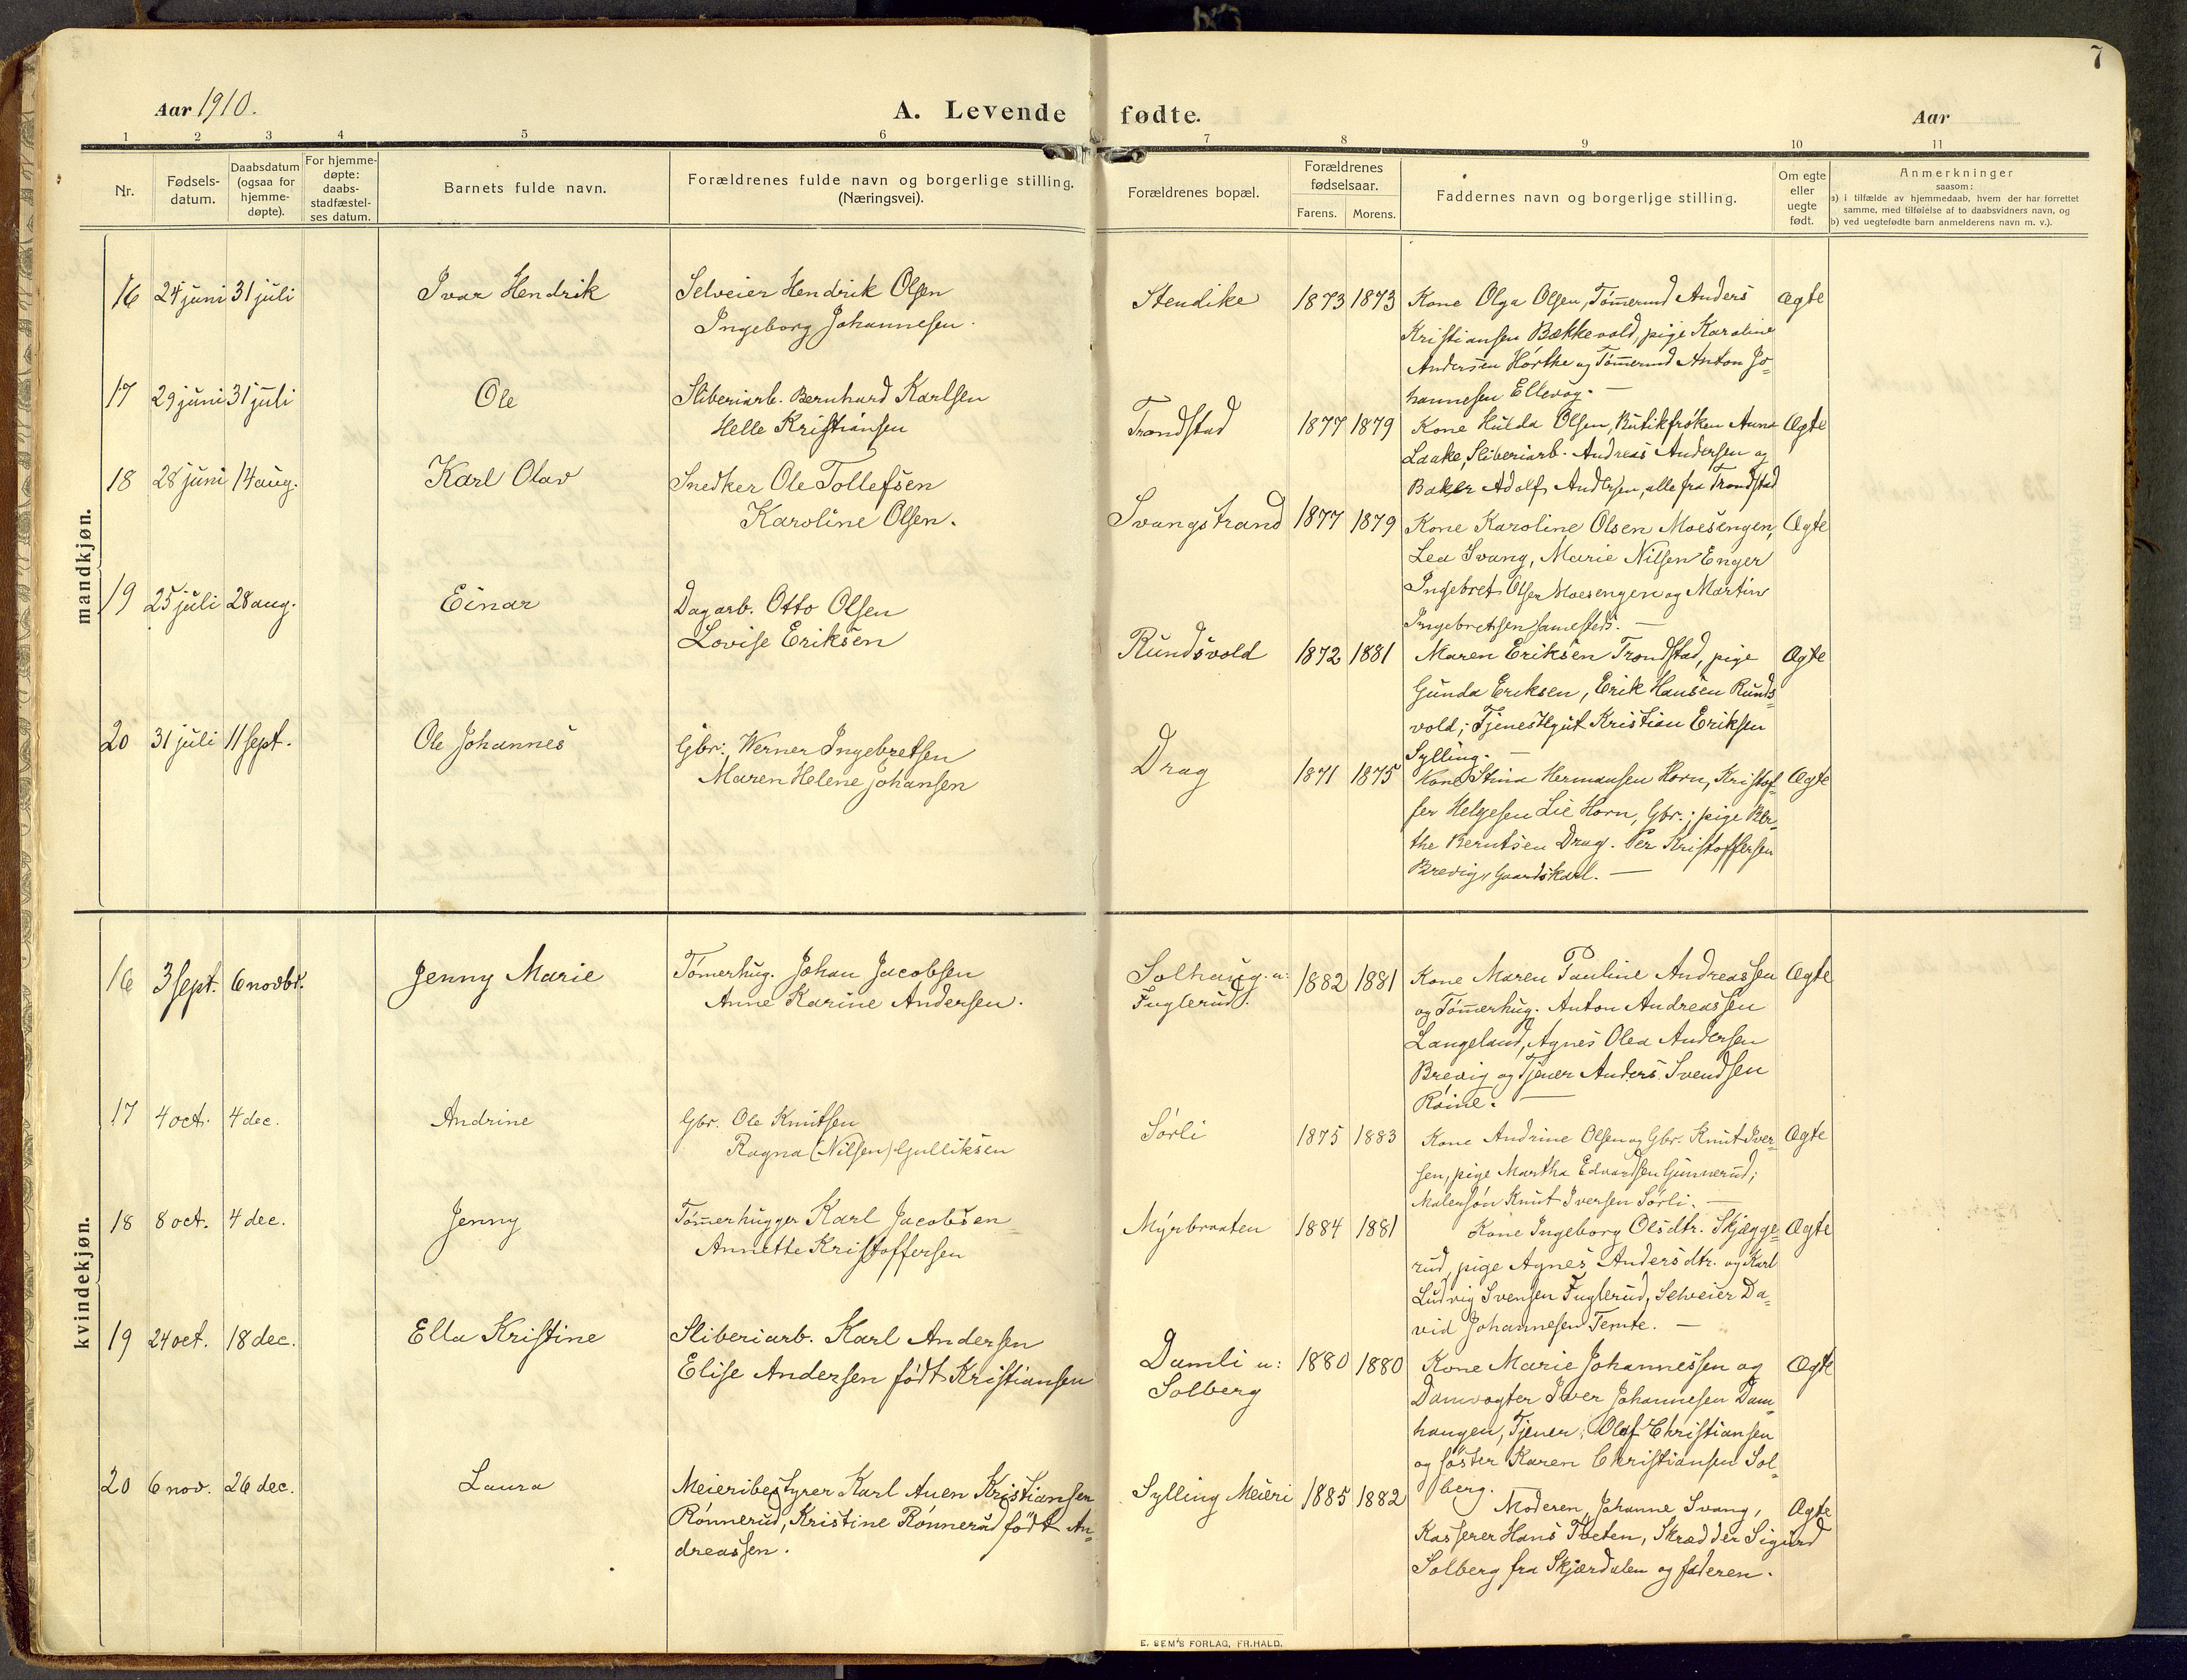 7
Aar 1910.
A. Levende fødte.
Aar
1 2 3 4 5 6 7 8 9 10 11
Nr.
Fødsels-
datum.
Daabsdatum
(ogsaa for
hjemme-
døpte).
For hjemme-
døpte:
daabs-
stadfæstel-
ses datum.
Barnets fulde navn.
Forældrenes fulde navn og borgerlige stilling.
(Næringsvei).
Forældrenes bopæl.
Forældrenes
fødselsaar.
Farens. Morens.
Faddernes navn og borgerlige stilling.
Om egte
eller
uegte
født.
Anmerkninger
saasom:
a) i tilfælde av hjemmedaab, hvem der har forrettet
samme, med tilføielse af to daabsvidners navn, og
b) ved uegtefødte barn anmelderens navn m. v.).
mandkjøn.
16 24 juni 31 juli
Ivar Hendrik
Selveier Hendrik Olsen
Ingeborg Johannesen.
Stendike
1873 1873
Kone Olga Olsen, Tømermd Anders
Kristiansen Bækkevold, pige Karoline
Andersen Hørthe og Tømermd Anton Jo-
hannesen Ellevog. —
Ægte
17 29 juni 31 juli
Ole
Sliberiarb. Bernhard Karlsen
Helle Kristiansen
Trondstad
1877 1879
Kone Hulda Olsen, Butikfrøken Anna
Laake, Sliberiarb. Andreas Andersen og
Baker Adolf Andersen, alle fra Trondstad
Ægte
18 28 juni 14 aug.
Karl Olav
Snedker Ole Tollefsen
Karoline Olsen.
Svangstrand
1877 1879
Kone Karoline Olsen Moesengen,
Lea Svang, Marie Nilsen Enger
Ingebret Olsen Moesengen og Martin
Ingebretsen samesteds. —
Ægte
19 25 juli 28 aug.
Einar
Dagarb. Otto Olsen
Lovise Eriksen
Rundsvold
1872 1881
Maren Eriksen Trondstad, pige
Gunda Eriksen, Erik Hansen Runds-
vold; Tjenestgut Kristian Eriksen
Sylling. —
Ægte
20 31 juli 11 sept.
Ole Johannes
Gbr. Werner Ingebretsen
Maren Helene Johansen
Drag
1871 1875
Kone Stina Hermansen Horn, Kristof-
fer Helgesen Lie Horn, Gbr.; pige Ber-
the Berntsen Drag. Per Kristoffersen
Brevig, Gaardskarl. —
Ægte
kvindekjøn.
16 3 sept. 6 novbr.
Jenny Marie
Tømerhug. Johan Jacobsen
Anne Karine Andersen.
Solhaug u:
Fuglerud.
1882 1881
Kone Maren Pauline Andreassen
og Tømmerhug. Anton Andreassen
Langeland, Agnes Olea Andersen
Brevig og Tjener Anders Svendsen
Røine. —
Ægte
17 4 oct. 4 dec.
Andrine
Gbr. Ole Knutsen
Ragna (Nilsen) Gulliksen
Sørli
1875 1883
Kone Andrine Olsen og Gbr. Knut Iver-
sen, pige Martha Edvardsen Gunnerud;
Malersøn Knut Iversen Sørli. —
Ægte
18 8 oct. 4 dec.
Jenny
Tømerhugger Karl Jacobsen
Annette Kristoffersen
Myrbraaten
1884 1881
Kone Ingeborg Olsdtr. Skjægge-
rud, pige Agnes Andersdtr. og Karl
Ludvig Svensen Fuglerud, Selveier Da-
vid Johannesen Temte. —
Ægte
19 24 oct. 18 dec.
Ella Kristine
Sliberiarb. Karl Andersen
Elise Andersen født Kristiansen
Damli u:
Solberg
1880 1880
Kone Marie Johannessen og
Damvogter Iver Johannesen Dam-
haugen, Tjener, Olaf Christiansen
og søster Karen Christiansen Sol-
berg. —
Ægte
20 6 nov. 26 dec.
Laura
Meieribestyrer Karl Auen Kristiansen
Rønnerud, Kristine Rønnerud født An-
dreassen.
Sylling Meieri
1885 1882
Moderen, Johanne Svang,
Kasserer Hans Tveten, Skrædder Sigurd
Solberg fra Skjærdalen og faderen.
Ægte
E. SEM'S FORLAG, FR.HALD.